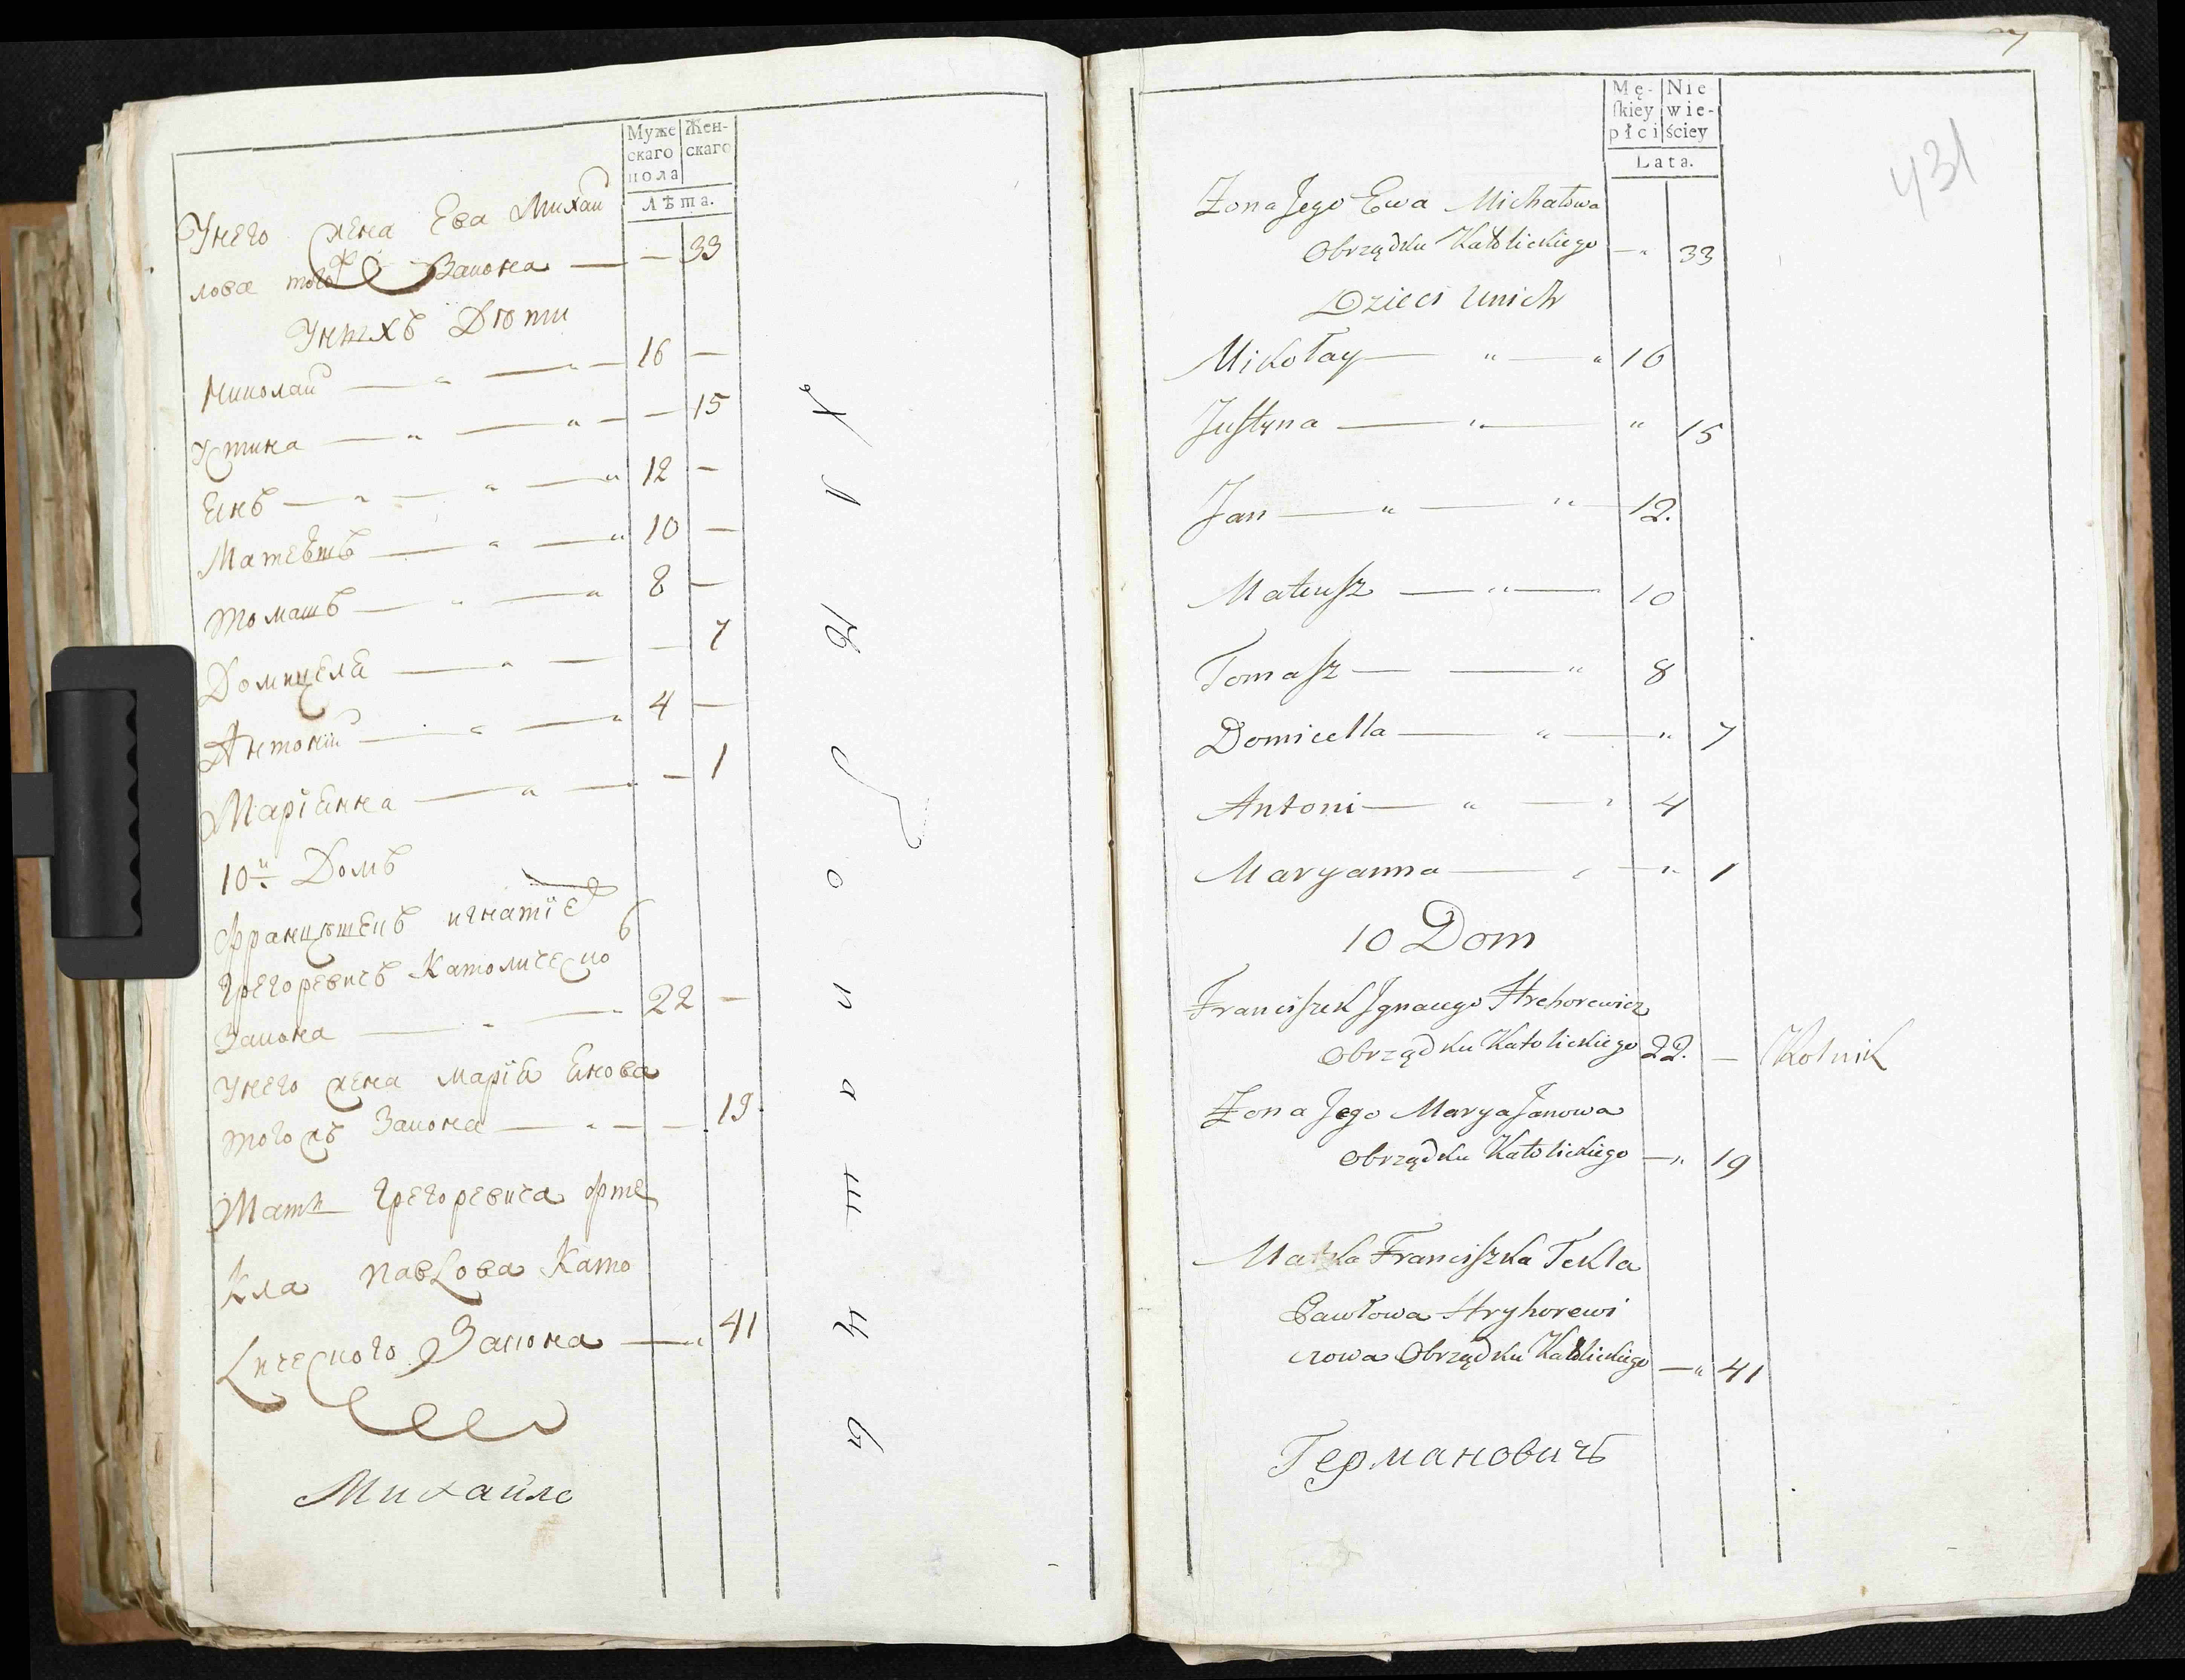 Муже
скаго
пола
Жен-
скаго
Лѣта.
Унего жена Ева Михай
лова того ж Закона — — 33
Унихъ Дѣти
Николай — „ — „ — 16 —
Устина — „ — „ — — 15
Янъ — „ — „ — „ 12 —
Матеѣшъ — „ — „ 10 —
Томашъ — „ — „ 8 —
Домицеля — „ — — 7
Антоній — „ — „ 4 —
Маріянна — „ — — 1
10й Домъ
Францышекъ игнатіе
въ
Грегоревичъ Католическо
Закона — „ — 22 —
Унего жена Марія Янова
того жъ Закона — „ — — 19
Мать Грегоревича фте
Кла Павлова Като
личесного Закона — „ 41
Михайло
Мę-
ſkiey
płci
Nie
wie-
ściey
Lata.
431
Zona Jego Ewa Michałowa
Obrządku Katolickiego — „ 33
Dzieci Unich
Mikołay — „ — „ 16
Juſtyna — „ — „ 15
Jan — „ — „ — 12.
Mateuſz — „ — 10
Tomaſz — — „ 8
Domicella — „ — „ 7
Antoni — „ — „ 4
Maryanna — „ — „ 1
10 Dom
Franciſzek Jgnacego Hrehorewicz
Obrządku Katolickiego 22. — Rolnik
Zona Jego Marya Janowa
Obrządku Katolickiego — „ 19
Matka Franciſzka Tekla
Pawłowa Hryhorewi
czowa Obrządku Katolickiego — „ 41
Германовичъ